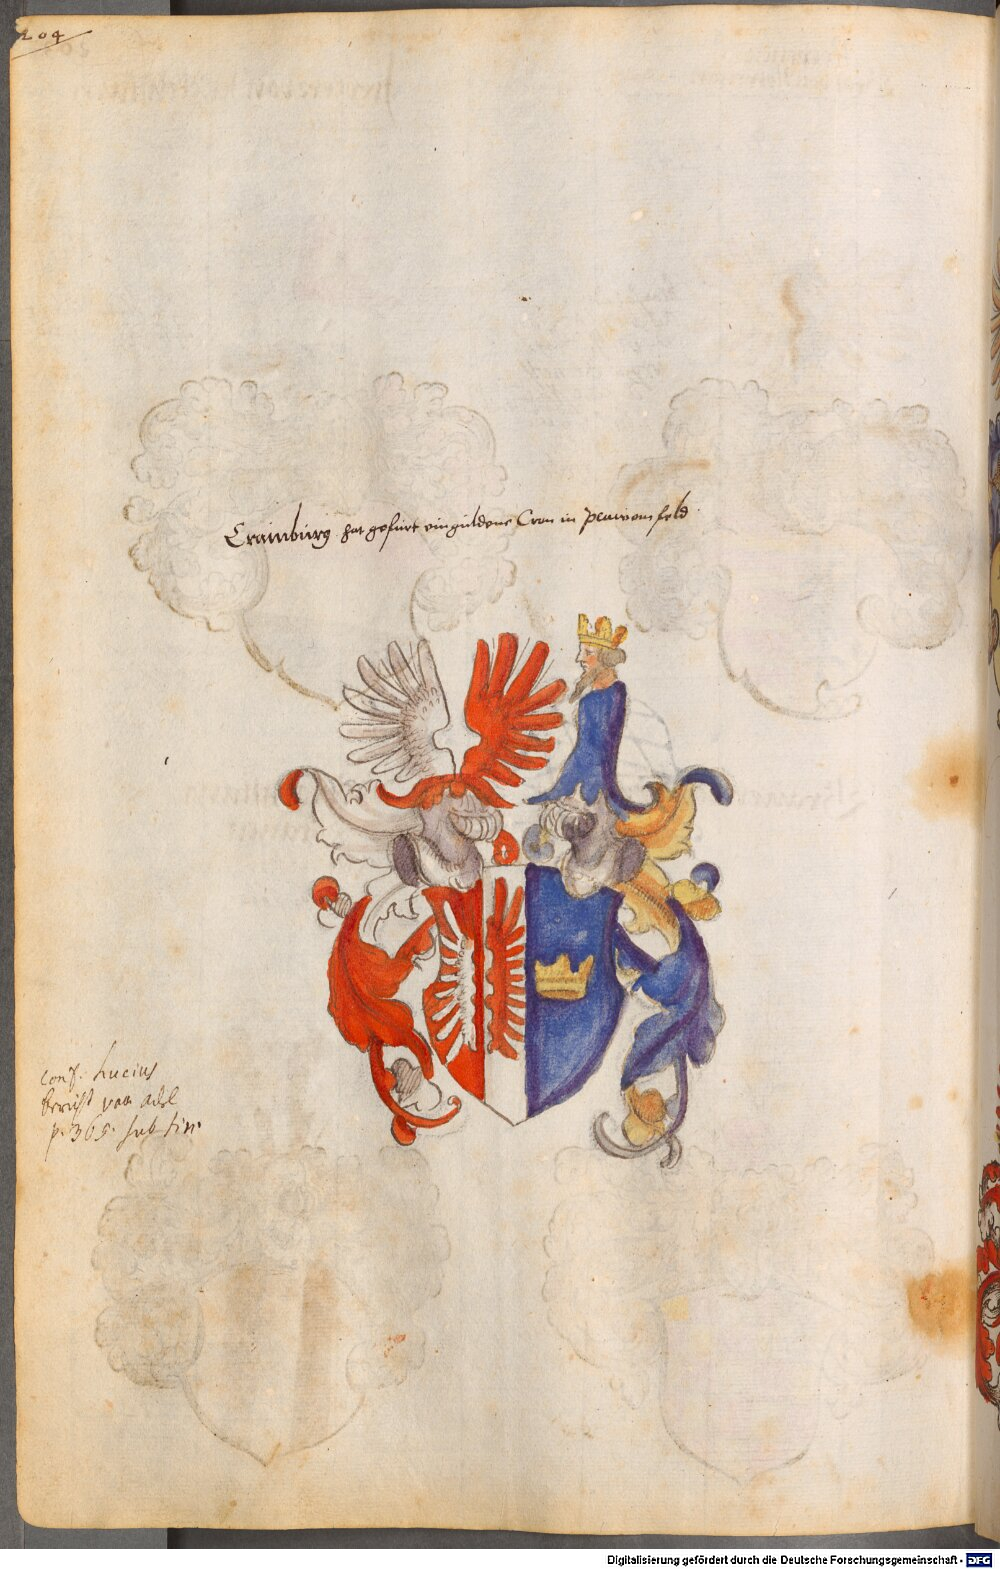 204
Crainburg hat gefürt ein guldene Cron in plawem feld
conf. Lucius
bericht vom adel
p. 365. sub fin.
Digitalisierung gefördert durch die Deutsche Forschungsgemeinschaft - DFG